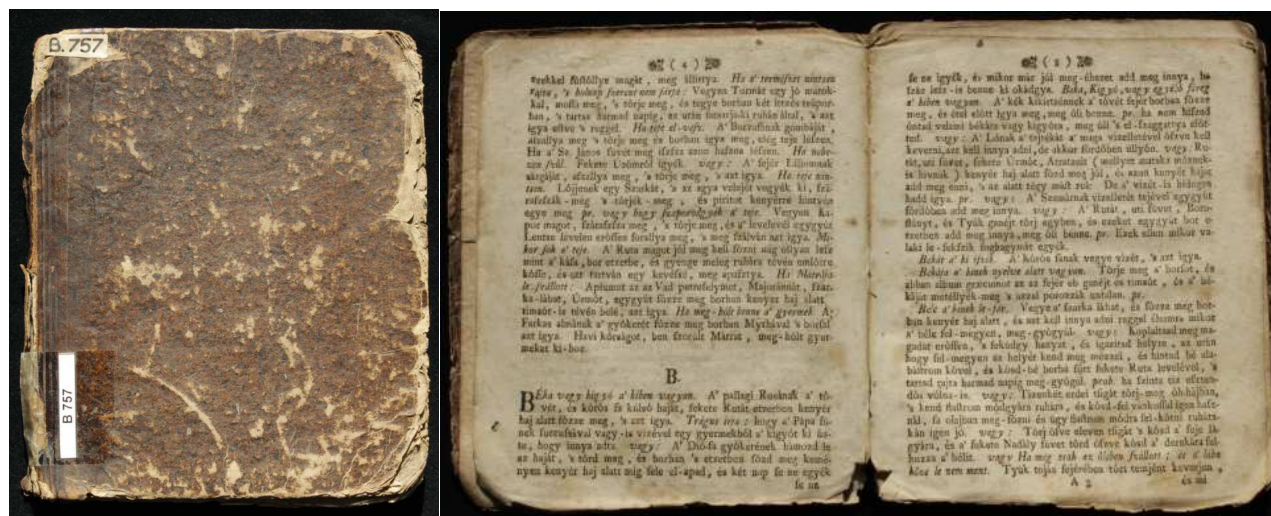 B. 757
B 757
( 4 )
magát, meg állittya. Ha a' természet nintsen
rajta, 's holnap szerent nem járja: Vegyen Tormát egy jó marok-
kal, mossa meg, 's törje meg, és tegye borban két
ban, 's tartsa harmad napig, az után ki ruhán által, 's azt
igya estve 's reggel. Ha teje el-vész. A'
meg 's törje meg és borban igya meg, elég teje lészen.
Ha a' Sz. János füvet meg
Fekete Ürömről igyék. vagy: A' fejér Liliomnak
meg, 's törje meg, 's azt igya. Ha teje nin-
tsen. egy 's az agya velejét vegyék ki,
meg 's törjék meg, és piritot kenyérre hintvén
egye meg pr. vagy hogy a' teje. Vegyen Ka-
por magot, meg, 's törje meg, és a' levelével egygyütt
Lentse levelen erössen meg, 's meg azt igya. Mi-
kor sok a' teje. A' Ruta magot jól meg kell főzni
mint a' kása, bor etzetbe, és gyenge meleg ruhára tévén emlőire
kösse, és ott tartván egy kevéssé, meg apasztya. Ha
Apiumot az az Vad petreselymet, Majoránnát, szar-
ka-lábat, Ürmöt, egygyütt főzze meg borban kenyér haj alatt
timsót-is tévén belé, azt igya. Ha meg-hólt benne a' gyermek. A'
Farkas almának a' gyökerét főzze meg borban Mythával 's borsal
azt igya. Havi kórságot, ben szorult Mátrát, meg-hólt gyer-
meket ki-hoz.
B.
BÉka vagy kigyó a' kiben vagyon. A' pallagi Rosának a' tö-
vét, és körös fa külső haját, fekete Rutát etzetben kenyér
haj alatt főzze meg, 's azt igya. Trágus irja: hogy a' Pápa fü-
nek vagy-is vizével egy gyermekből a' kigyót ki
te, hogy innya adta. vagy: A' Dió-fa gyökerének hámozd le
az haját, 's törd meg, és borban 's etzetben főzd meg kemé-
nyen kenyér haj alatt mig fele el-apad, és két nap se ne egyék
se ne
( 5 )
se ne igyék, és mikor már jól meg-éhezet add meg innya, ha
száz lesz-is benne ki okádgya. Béka, Kigyó, vagy egyéb féreg
a' kiben vagyon. A' kék tövét fejér borban főzze
meg, és étel előtt igya meg, meg öli benne. pr. ha nem hiszed
öntsd valami békára vagy kigyóra, meg öli 's el-szaggattya előt-
ted. vagy: A' Lónak a' tajtékát a' maga vizelletével öszve kell
keverni, azt kell innya adni, de akkor förödőben üllyön. vagy: Ru-
tát, uti füvet, fekete Ürmöt,
is hivnak ) kenyér haj alatt főzd meg jól, és azon kenyér haját
add meg enni, 's az alatt tégy mást rea: De a' vizét-is hidegen
hadd igya. pr. vagy: A' Szamárnak vizelletét tejével egygyütt
förödőben add meg innya. vagy: A' Rutát, uti füvet, Boro-
styányt, és Tyúk ganéjt törj egyben, és ezeket egygyütt bor e-
tzetben add meg innya, meg öli benne. pr. Ezek ellen mikor va-
laki le-fekszik foghagymát egyék.
Békát a' ki iszik. A' kőrös fának vegye vizét, 's azt igya.
Békája a' kinek nyelve alatt vagyon. Törje meg a' borsot, és
album græcumot az az fejér eb ganéjt és timsót, és a' bé-
káját messék-meg 's azzal porozzák untalan. pr.
Béle a' kinek le-jár. Vegye a' szarka lábat, és főzze meg bor-
ban kenyér haj alatt, és azt kell innya adni reggel éhomra mikor
a' béle fel-megyen, meg-gyógyúl. vagy: Koplaltasd meg ma-
gadat erőssen, 's feküdgy hanyat, és igazitsd helyre, az után
hogy fel-megyen az helyét kend meg mézzel, és hintsd bé ala-
bástrom kővel, és kösd-bé borbá főtt fekete Ruta levelével, 's
tartsd rajta harmad napig meg-gyógyúl. prob. ha szinte tiz eszten-
dős vólna-is. vagy: Tizenkét erdei tsigát törj-meg ólöhájban,
's kend flastrom módgyára ruhára, és
fa olajban meg-főzni és úgy flastrom módra fel-kötni ruhára
kán igen jó. vagy: Törj öszve eleven tsigát 's kösd a' feje lá-
gyára, és a' fekete Nadály füvet törd öszve kösd a' derekára fel-
huzza a' bélit. vagy Ha meg tsak az ölében szállott; és a' lába
köze le nem ment. Tyúk tojás fejérében tört temjént keverjen,
A 3
és